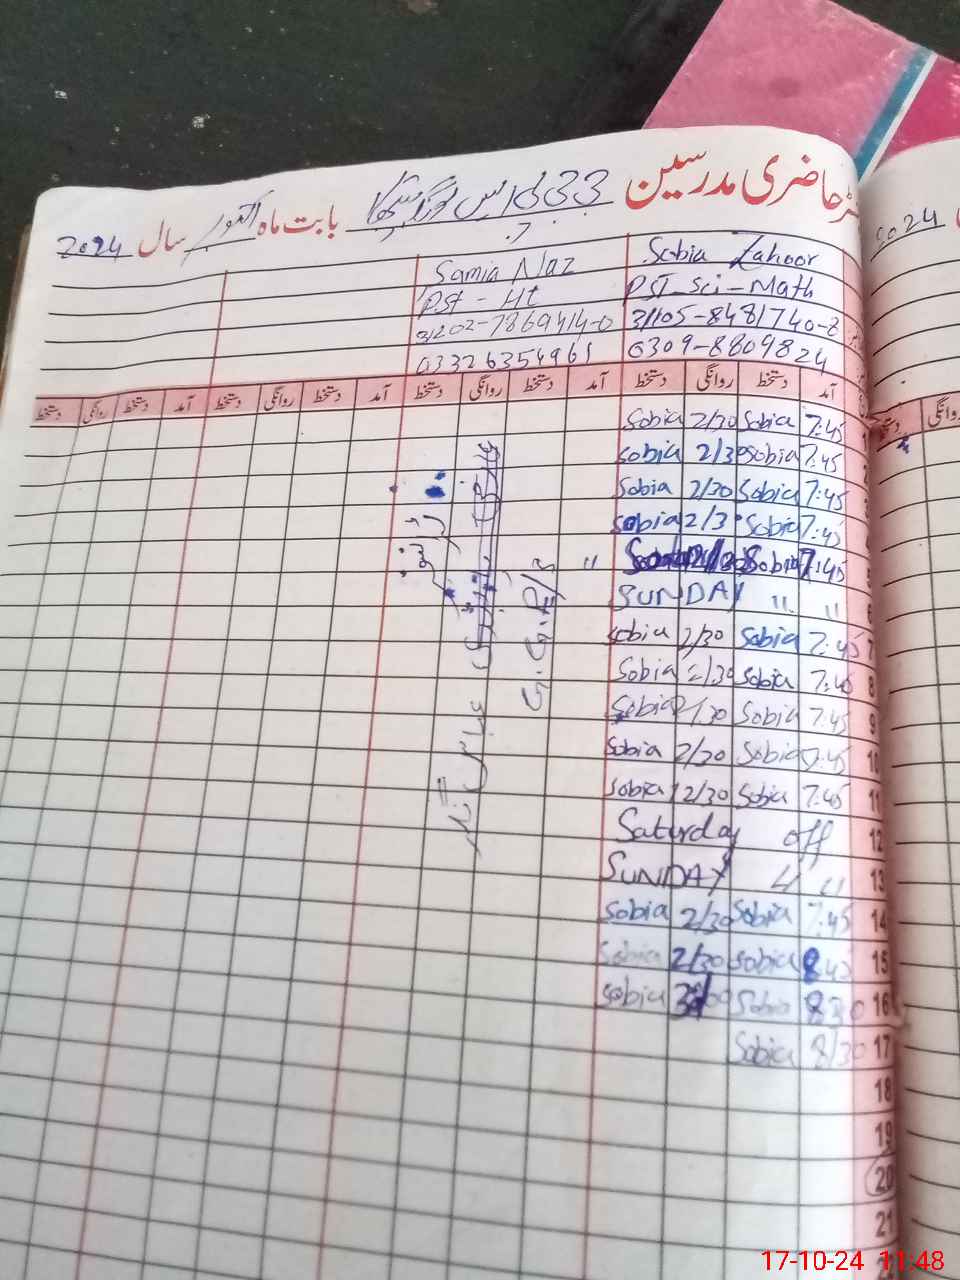 رجسٹر حاضری مدرسین بابت ماہ اکتوبر سال 2024
Sobia Zahoor Samia Naz
PST Sci-Math PST - Ht
31105-8481740-8 31202-7869414-0
0309-8809824 03326354961
آمد دستخط روانگی دستخط آمد دستخط روانگی دستخط آمد دستخط روانگی دستخط آمد دستخط روانگی دستخط
7:45 Sobia 2/30 Sobia
7:45 Sobia 2/30 Sobia
7:45 Sobia 2/30 Sobia
7:45 Sobia 2/30 Sobia
7:45 Sobia
SUNDAY " "
7 7:45 Sobia 2/30 Sobia
8 7:45 Sobia 2/30 Sobia
9 7:45 Sobia 2/30 Sobia
10 7:45 Sobia 2/30 Sobia
11 7:45 Sobia 2/30 Sobia
12 Saturday off
13 SUNDAY
14 7:45 Sobia 2/30 Sobia
15 Sobia 2/30 Sobia
16 Sobia Sobia
17 8/30 Sobia
18
19
20
21
2024
روانگی
17-10-24 11:48